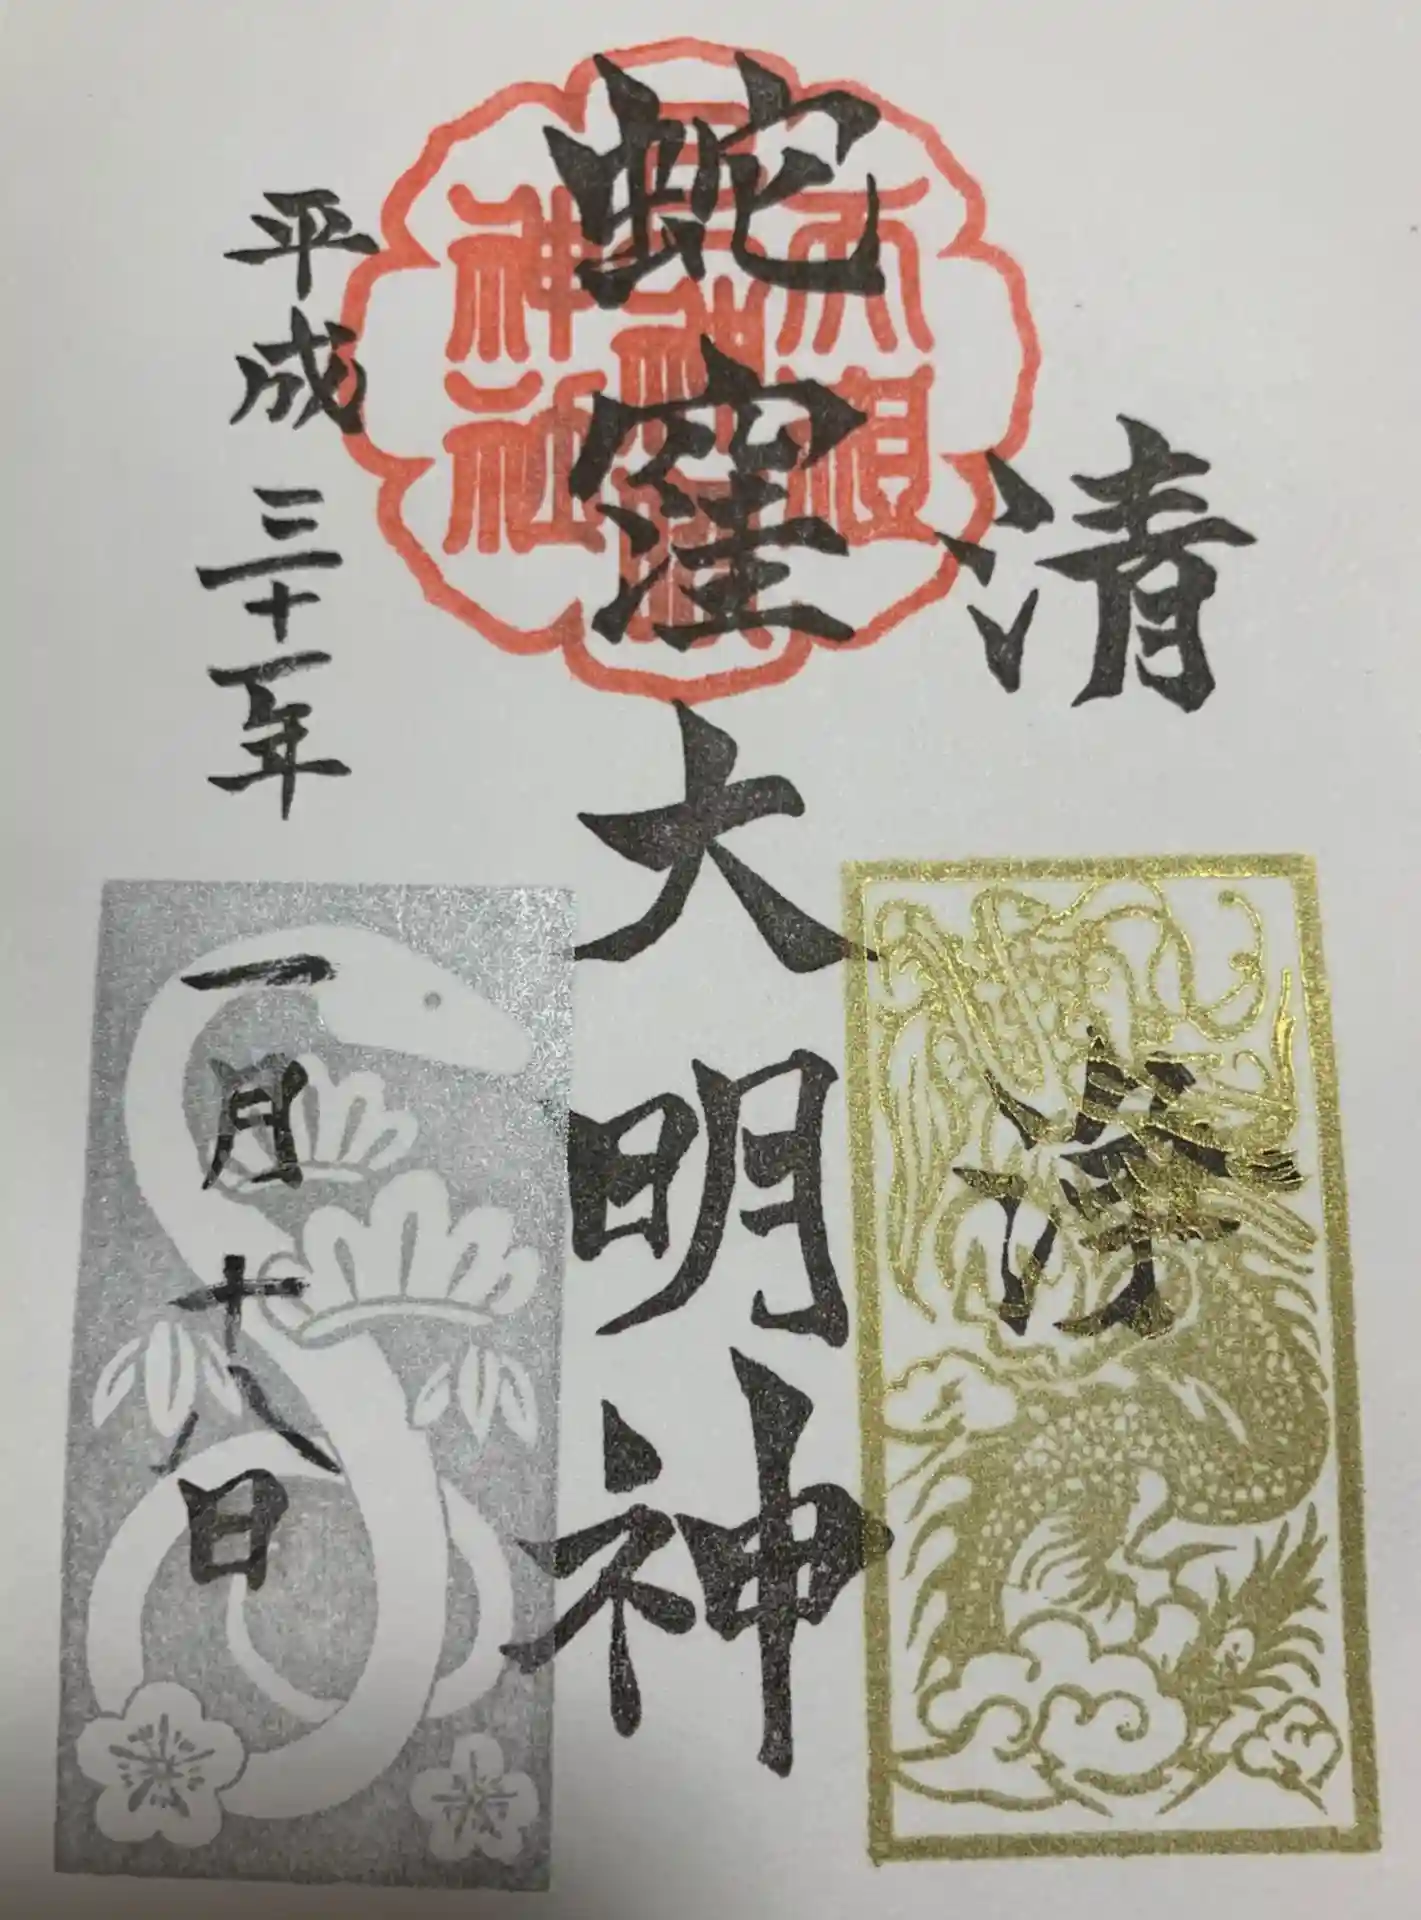 清淨
蛇窪大明神
平成三十一年
一月十八日
天祖
神社